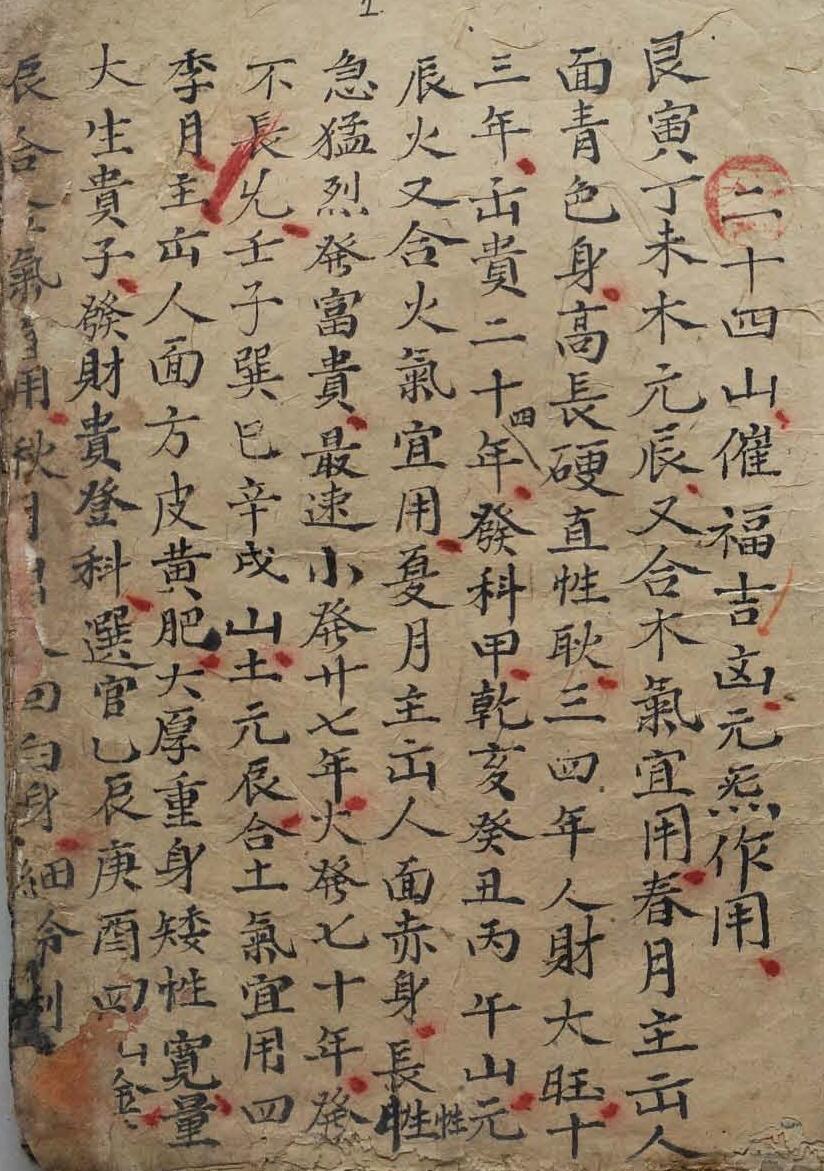 二十四山催福吉凶元炁作用
艮寅丁未木元辰又合木氣宜用春月主出人
面青色身高長硬直性耿三四年人財大旺十
三年出貴二十四年發科甲乾亥癸丑丙午山元
辰火又合火氣宜用夏月主出人面赤身長性性
急猛烈發富貴最速小發廿七年大發七十年發
不長久壬子巽巳辛戌山土元辰合土氣宜用四
季月主出人面方皮黄肥大厚重身矮性寬量
大生貴子發財貴登科選官乙辰庚酉四山金
辰合金氣宜用秋月出人面白身細